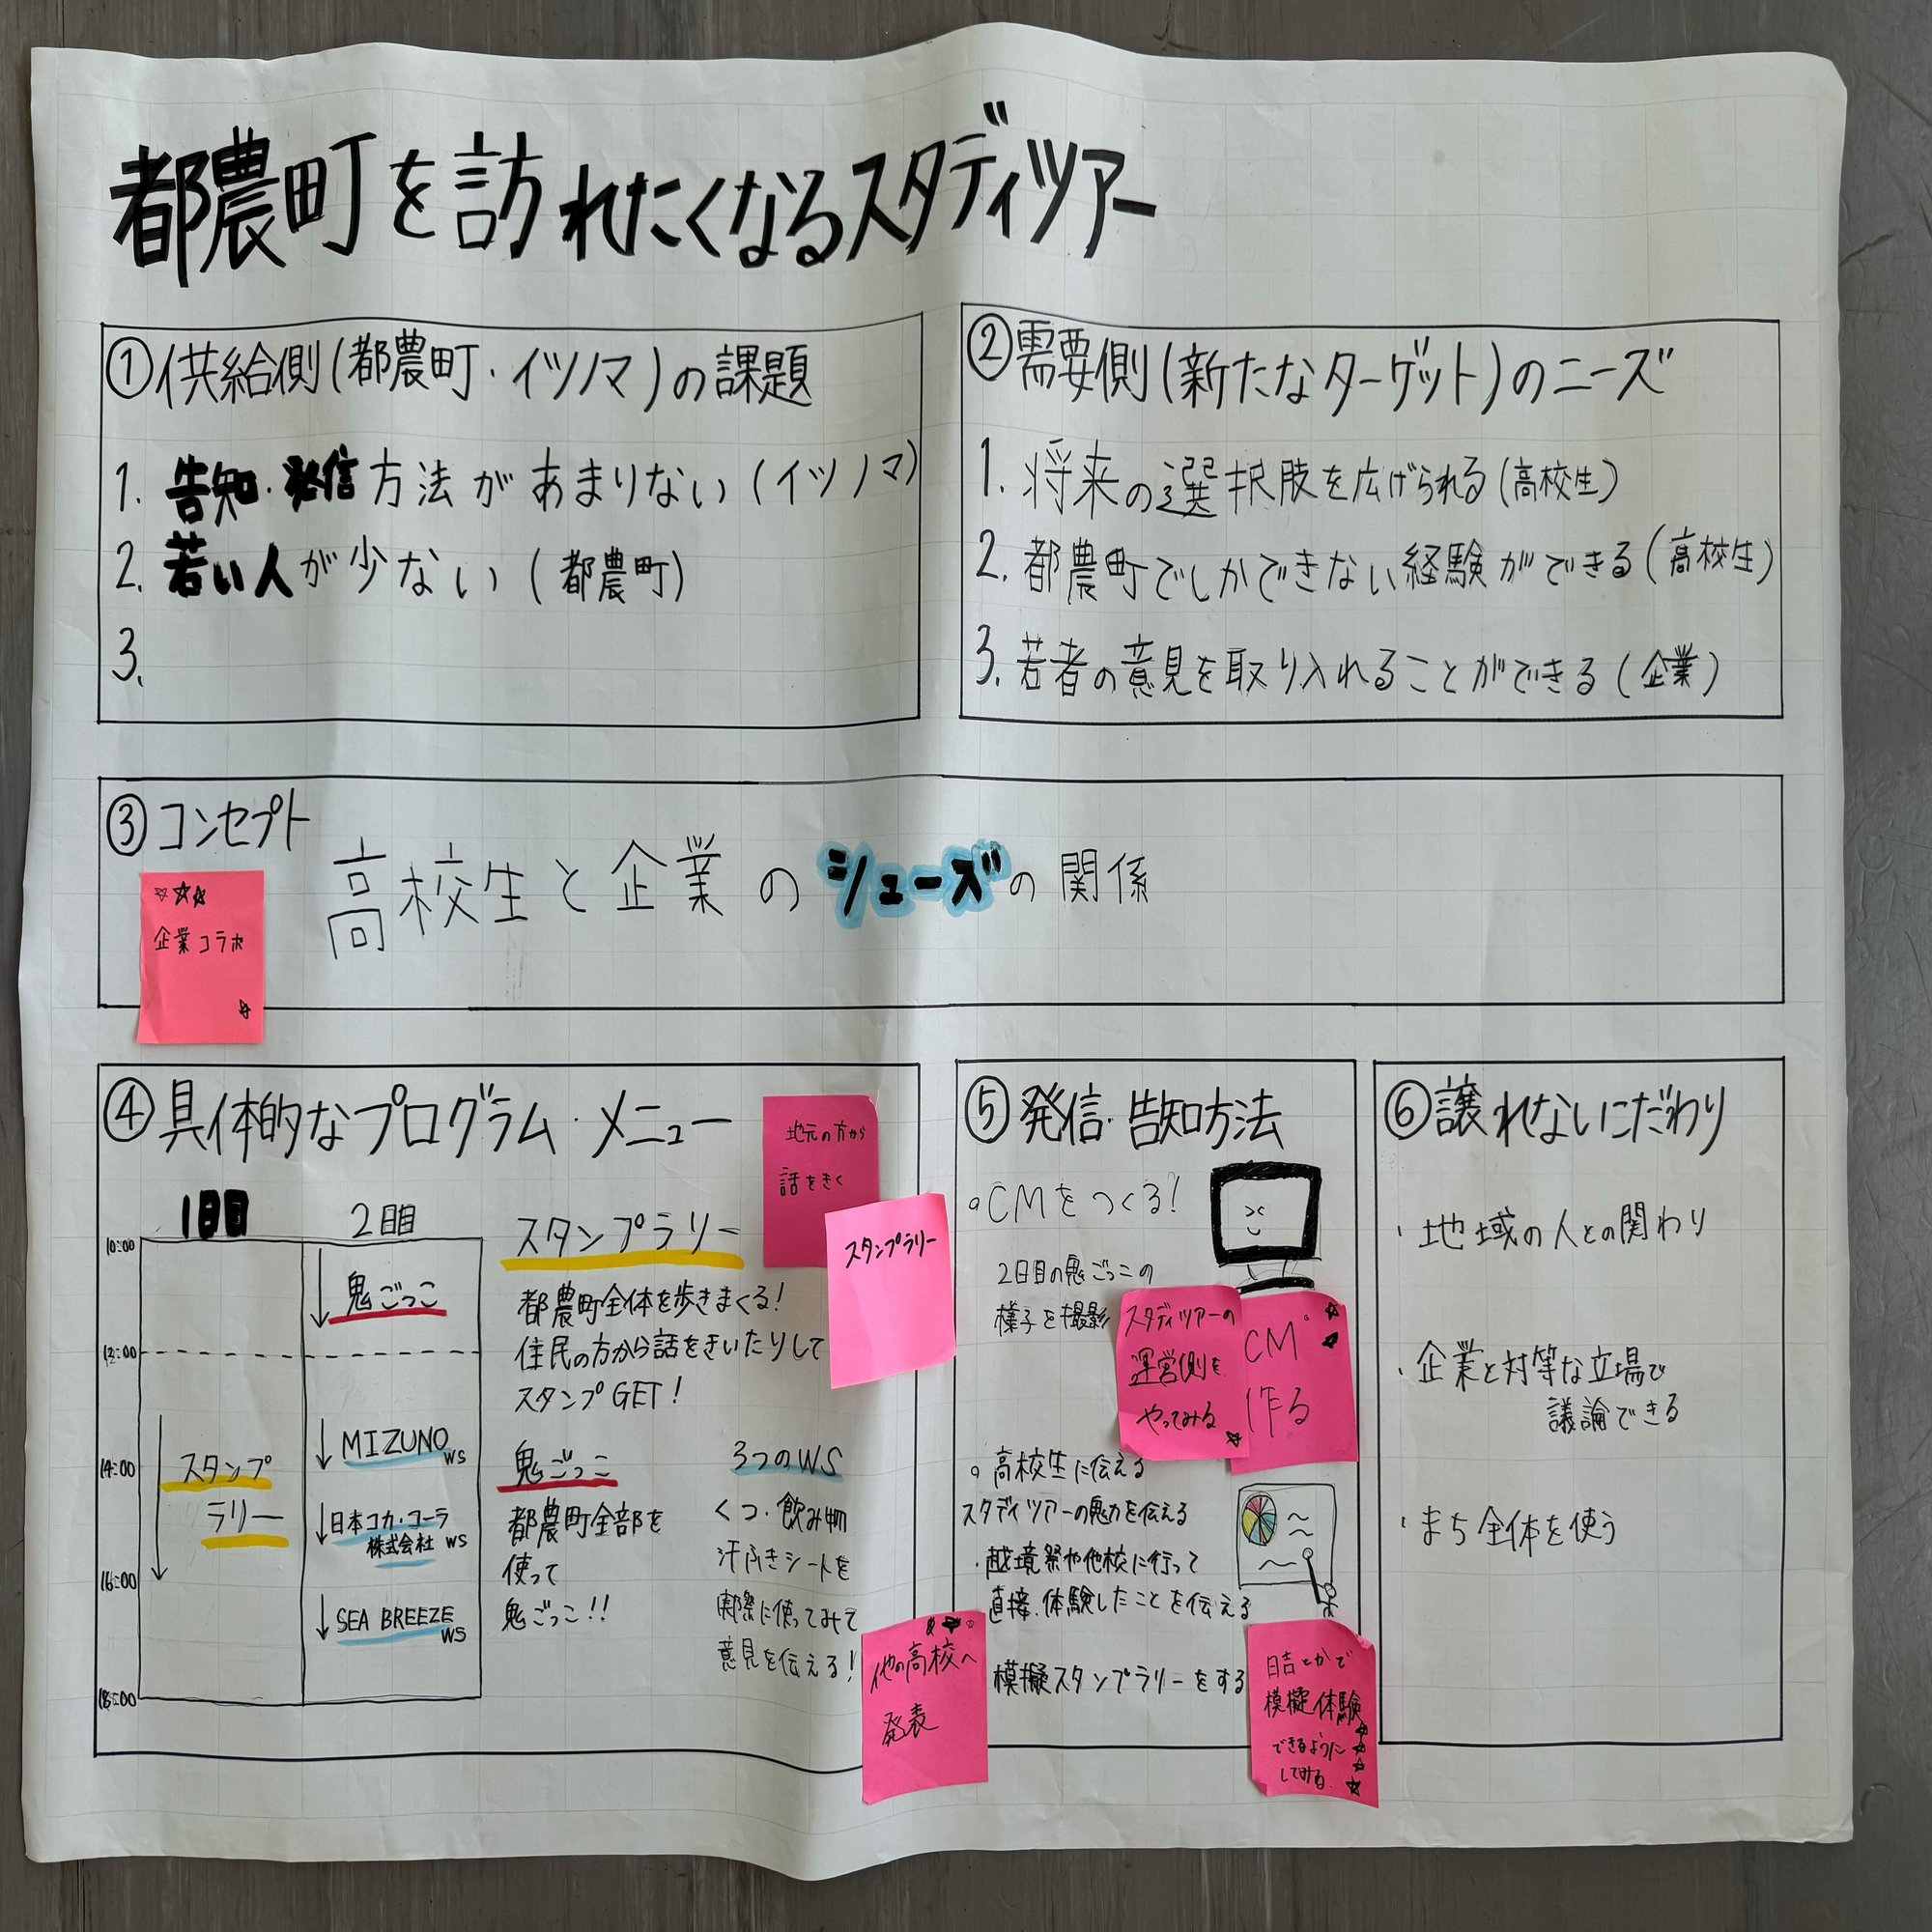 都農町を訪れたくなるスタディツアー
①供給側(都農町・イツノマ)の課題
1. 告知・発信方法があまりない(イツノマ)
2. 若い人が少ない(都農町)
3.
②需要側(新たなターゲット)のニーズ
1. 将来の選択肢を広げられる(高校生)
2. 都農町でしかできない経験ができる(高校生)
3. 若者の意見を取り入れることができる(企業)
③コンセプト
高校生と企業のシューズの関係
企業コラボ
④具体的なプログラム・メニュー
地元の方から
話をきく
スタンプラリー
1日目
2日目
10:00
12:00
14:00
16:00
18:00
スタンプ
ラリー
鬼ごっこ
MIZUNO
WS
日本コカ・コーラ
株式会社 WS
SEA BREEZE
WS
スタンプラリー
都農町全体を歩きまくる!
住民の方から話をきいたりして
スタンプGET!
鬼ごっこ
都農町全部を
使って
鬼ごっこ!!
3つのWS
くつ・飲み物
汗ふきシートを
実際に使ってみて
意見を伝える!
他の高校へ
発表
⑤発信・告知方法
○CMをつくる!
2日目の鬼ごっこの
様子を撮影
スタディツアーの
運営側を
やってみる
CM
作る
○高校生に伝える
スタディツアーの魅力を伝える
・越境祭や他校に行って
直接、体験したことを伝える
模擬スタンプラリーをする
日吉とかで
模擬体験
できるように
してみる
⑥譲れないこだわり
・地域の人との関わり
・企業と対等な立場で
議論できる
・まち全体を使う